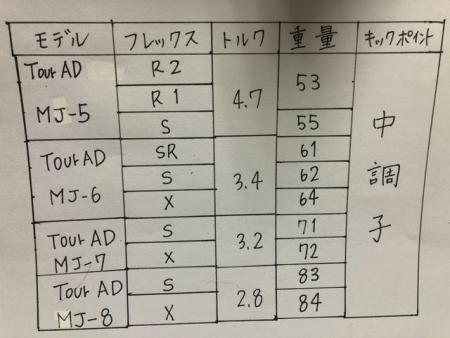 モデル フレックス トルク 重量 キックポイント
Tour AD MJ-5 R2 4.7 53 中調子
R1
S 55
Tour AD MJ-6 SR 3.4 61
S 62
X 64
Tour AD MJ-7 S 3.2 71
X 72
Tour AD MJ-8 S 2.8 83
X 84